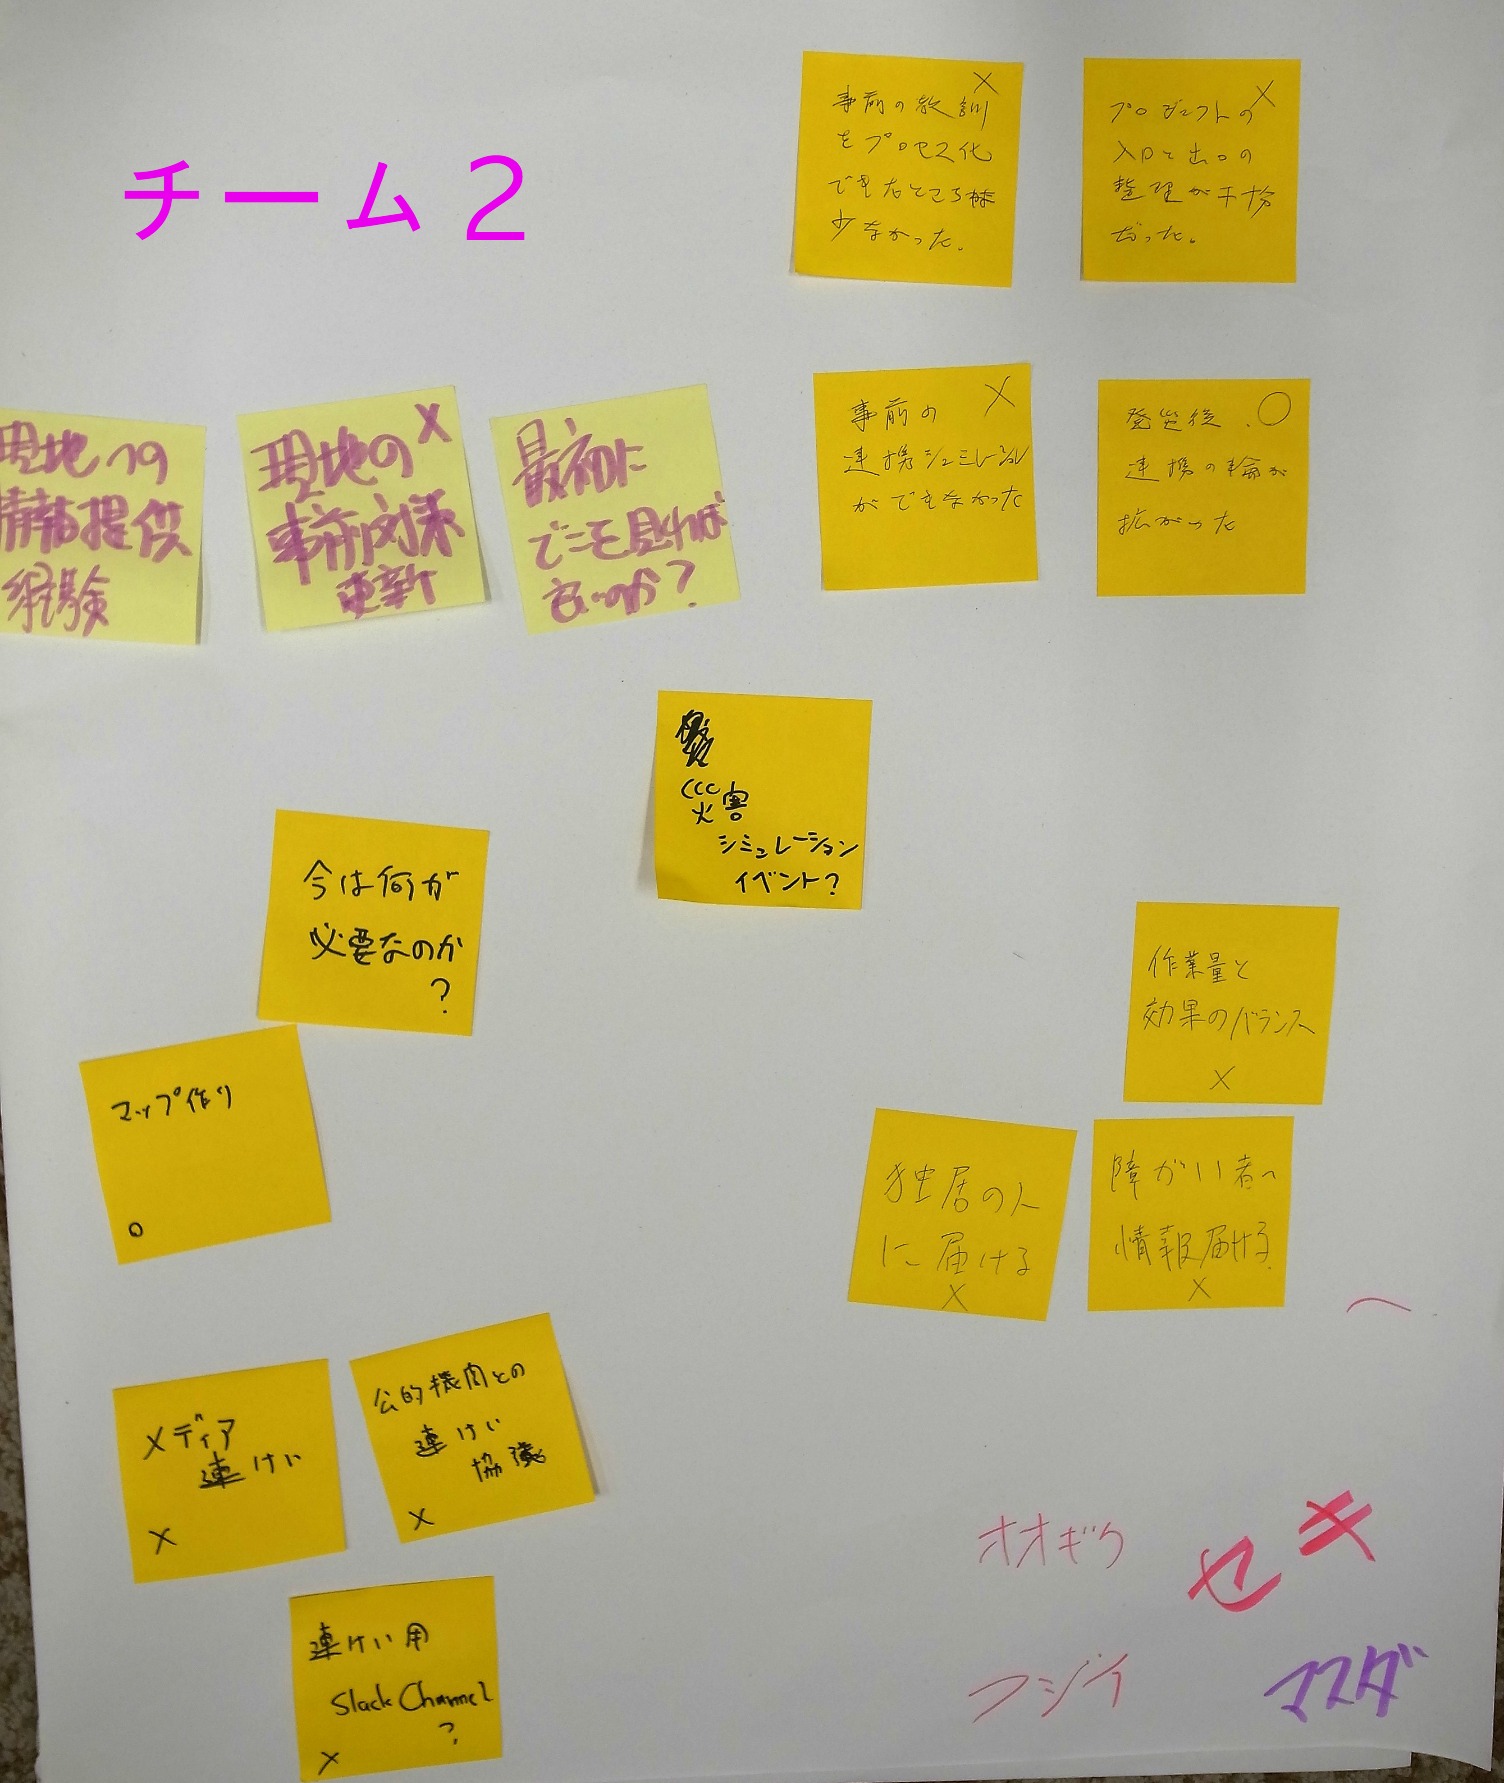 チーム２
×
事前の教訓
をプロセス化
できたところ
少なかった。
×
プロジェクトの
入口と出口の
整理が不十分
だった。
現地への
情報提供
経験
×
現地の
事前対策
更新
最初に
どこを見れば
良いのか?
×
事前の
連携シュミレーション
ができなかった
○
発災後、
連携の輪が
拡がった
災害
シミュレーション
イベント?
今は何が
必要なのか
?
作業量と
効果のバランス
×
マップ作り
○
独居の人
に届ける
×
障がい者へ
情報届ける
×
メディア
連けい
×
公的機関との
連けい
協議
×
連けい用
Slack Channel
?
×
オオギク
セキ
フジイ
マスダ